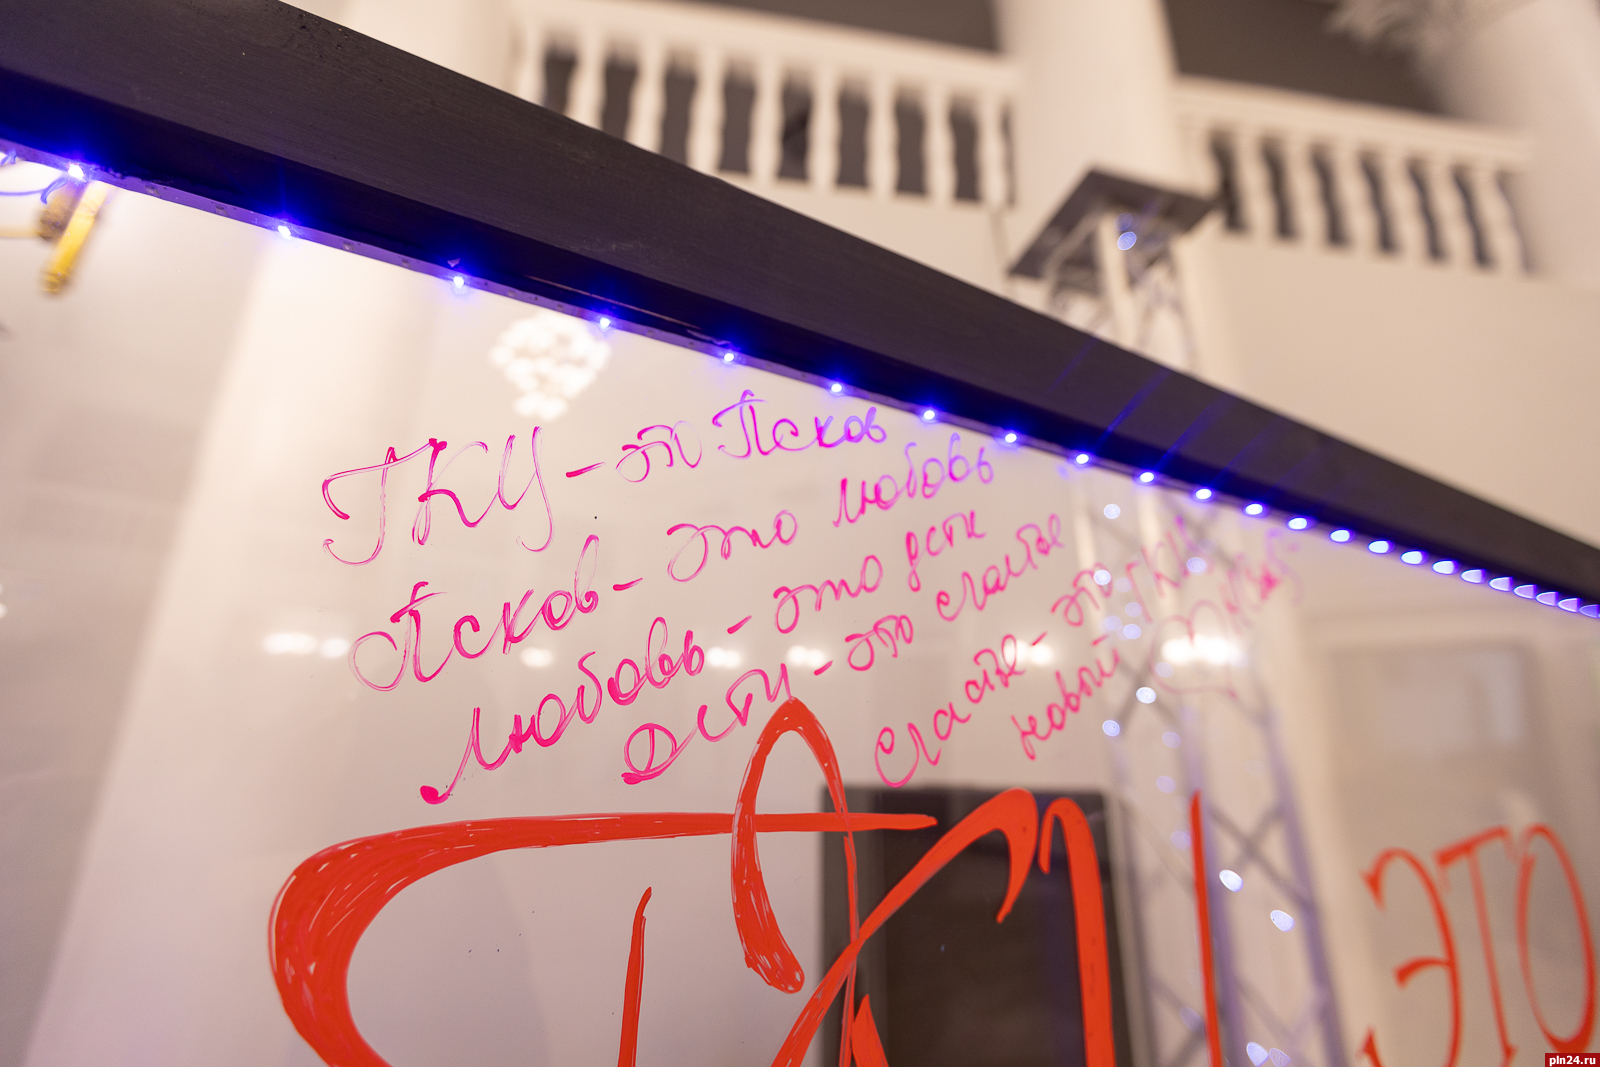 ГКЦ - это Псков
Псков - это любовь
Любовь - это дети
Дети - это счастье
Счастье - это ГКЦ
новый
ГКЦ ЭТО
pln24.ru